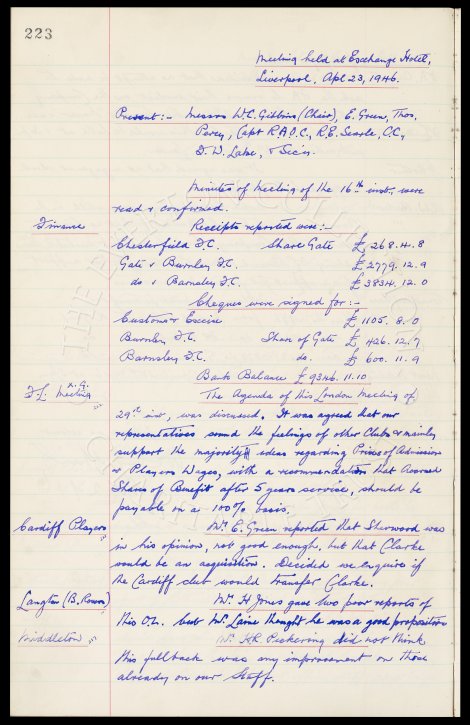 223
Meeting held at Exchange Hotel,
Liverpool. Apl 23, 1946.
Present:- Messrs W.C. Gibbins (Chair), E. Green, Thos.
Percy, Capt R.A.O.C., R.E. Searle, C.C.,
D.W. Lake, & Sec'y.
Minutes of Meeting of the 16th inst, were
read & confirmed.
Finance Receipts reported were:-
Chesterfield F.C. Share Gate £268.4.8
Gate v Burnley F.C. £2779.12.9
do v Barnsley F.C. £3834.12.0
Cheques were signed for:-
Customs & Excise £1105.8.0
Burnley F.C. Share of Gate £426.12.7
Barnsley F.C. do. £600.11.9
Bank Balance £9346.11.10
F.L. Meeting The Agenda of this London Meeting of
29th inst, was discussed. It was agreed that our
representatives sound the feelings of other Clubs & mainly
support the majority ideas regarding Prices of Admission
& Players Wages, with a recommendation that Accrued
Shares of Benefit after 5 years service, should be
payable on a 100% basis.
Cardiff Players Mr. E. Green reported that Sherwood was
in his opinion, not good enough, but that Clarke
would be an acquisition. Decided we enquire if
the Cardiff club would transfer Clarke.
Langton (B. Rovers) Mr. H Jones gave two poor reports of
this O.L. but Mr. Laine thought he was a good proposition
Middleton Mr. H.R. Pickering did not think
this fullback was any improvement on those
already on our Staff.